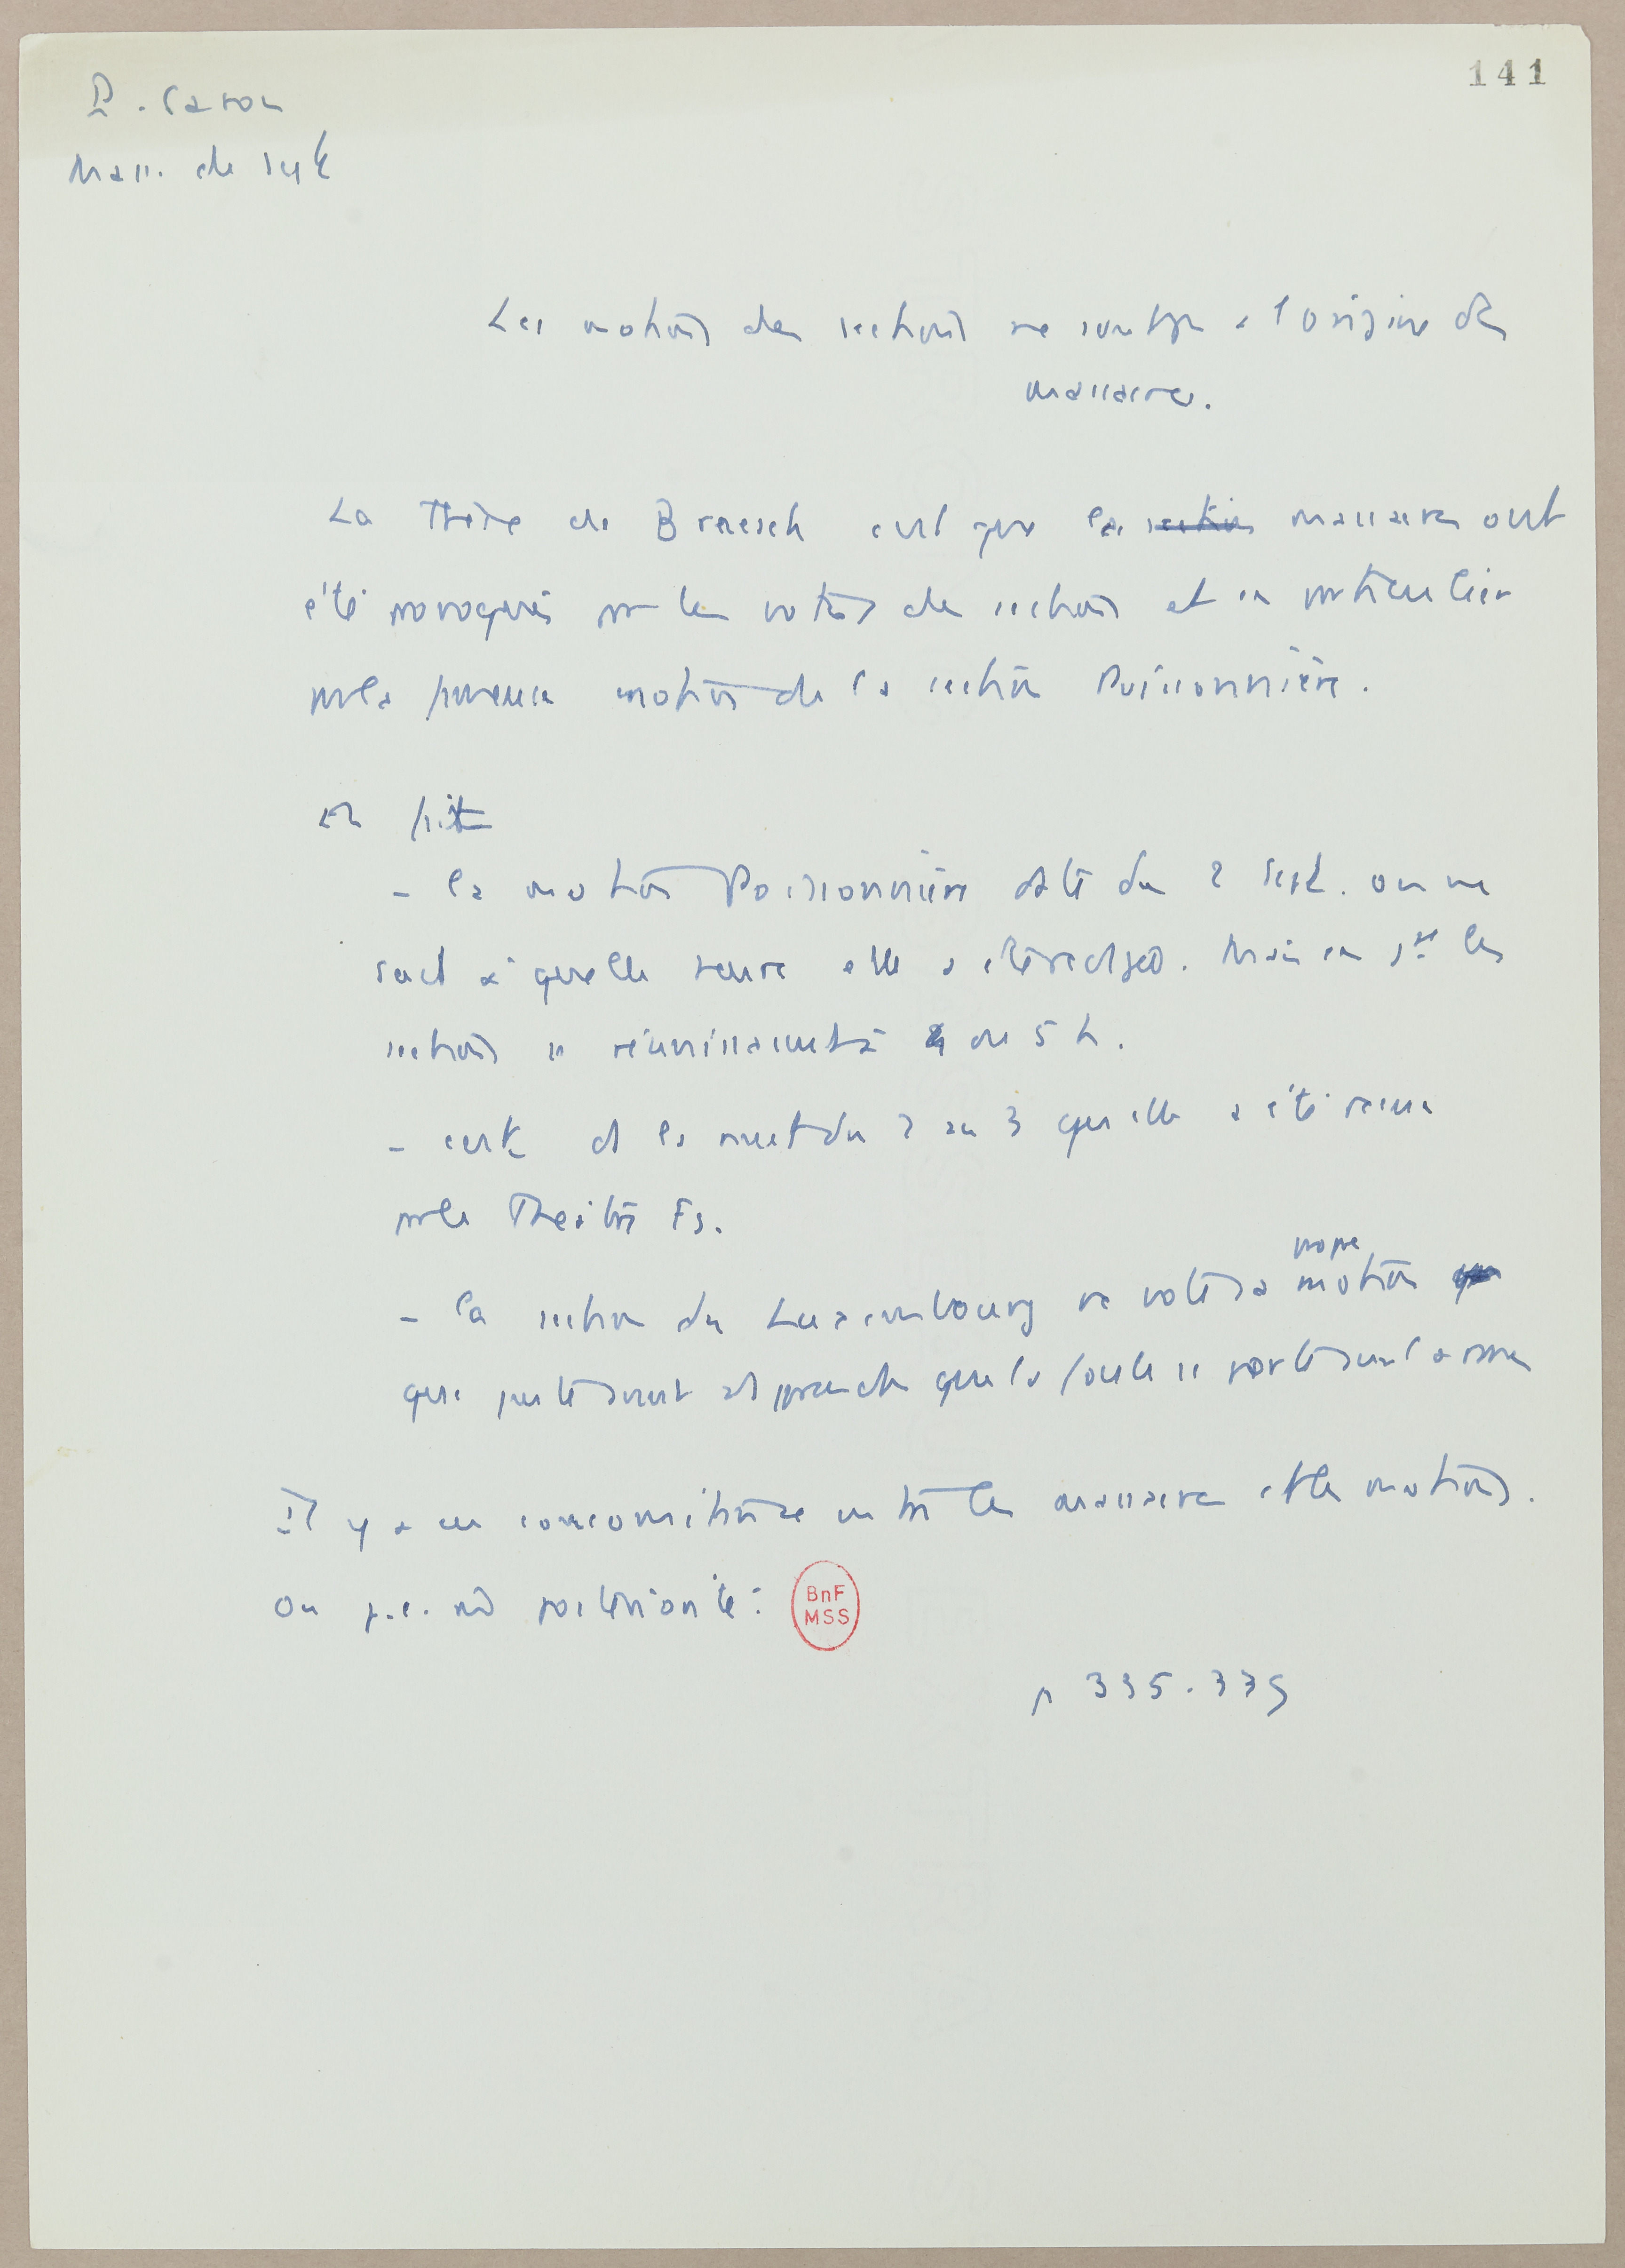 141
P. Caron
Mass. de sept
Les motions des sections ne sont pas à l'origine des
massacres.
La thèse de Braesch c'est que les sections massacres ont
été provoqués par les votes des sections et en particulier
par la fameuse motion de la section Poissonnière.
En fait
- la motion Poissonnière date du 2 Sept. on ne
sait à quelle heure elle a été rédigée. Mais en gal les
sections se réunissaient à 4 ou 5 h.
- c'est ds la nuit du 2 au 3 qu'elle a été reçue
par le Théâtre Fs.
- la section du Luxembourg ne vote sa propre motion
que juste avant d'apprendre que la foule se porte sur les Carmes
Il y a eu concomitance entre les massacres et les motions.
Ou p.e. mê postériorité :
BnF
MSS
p 335.339